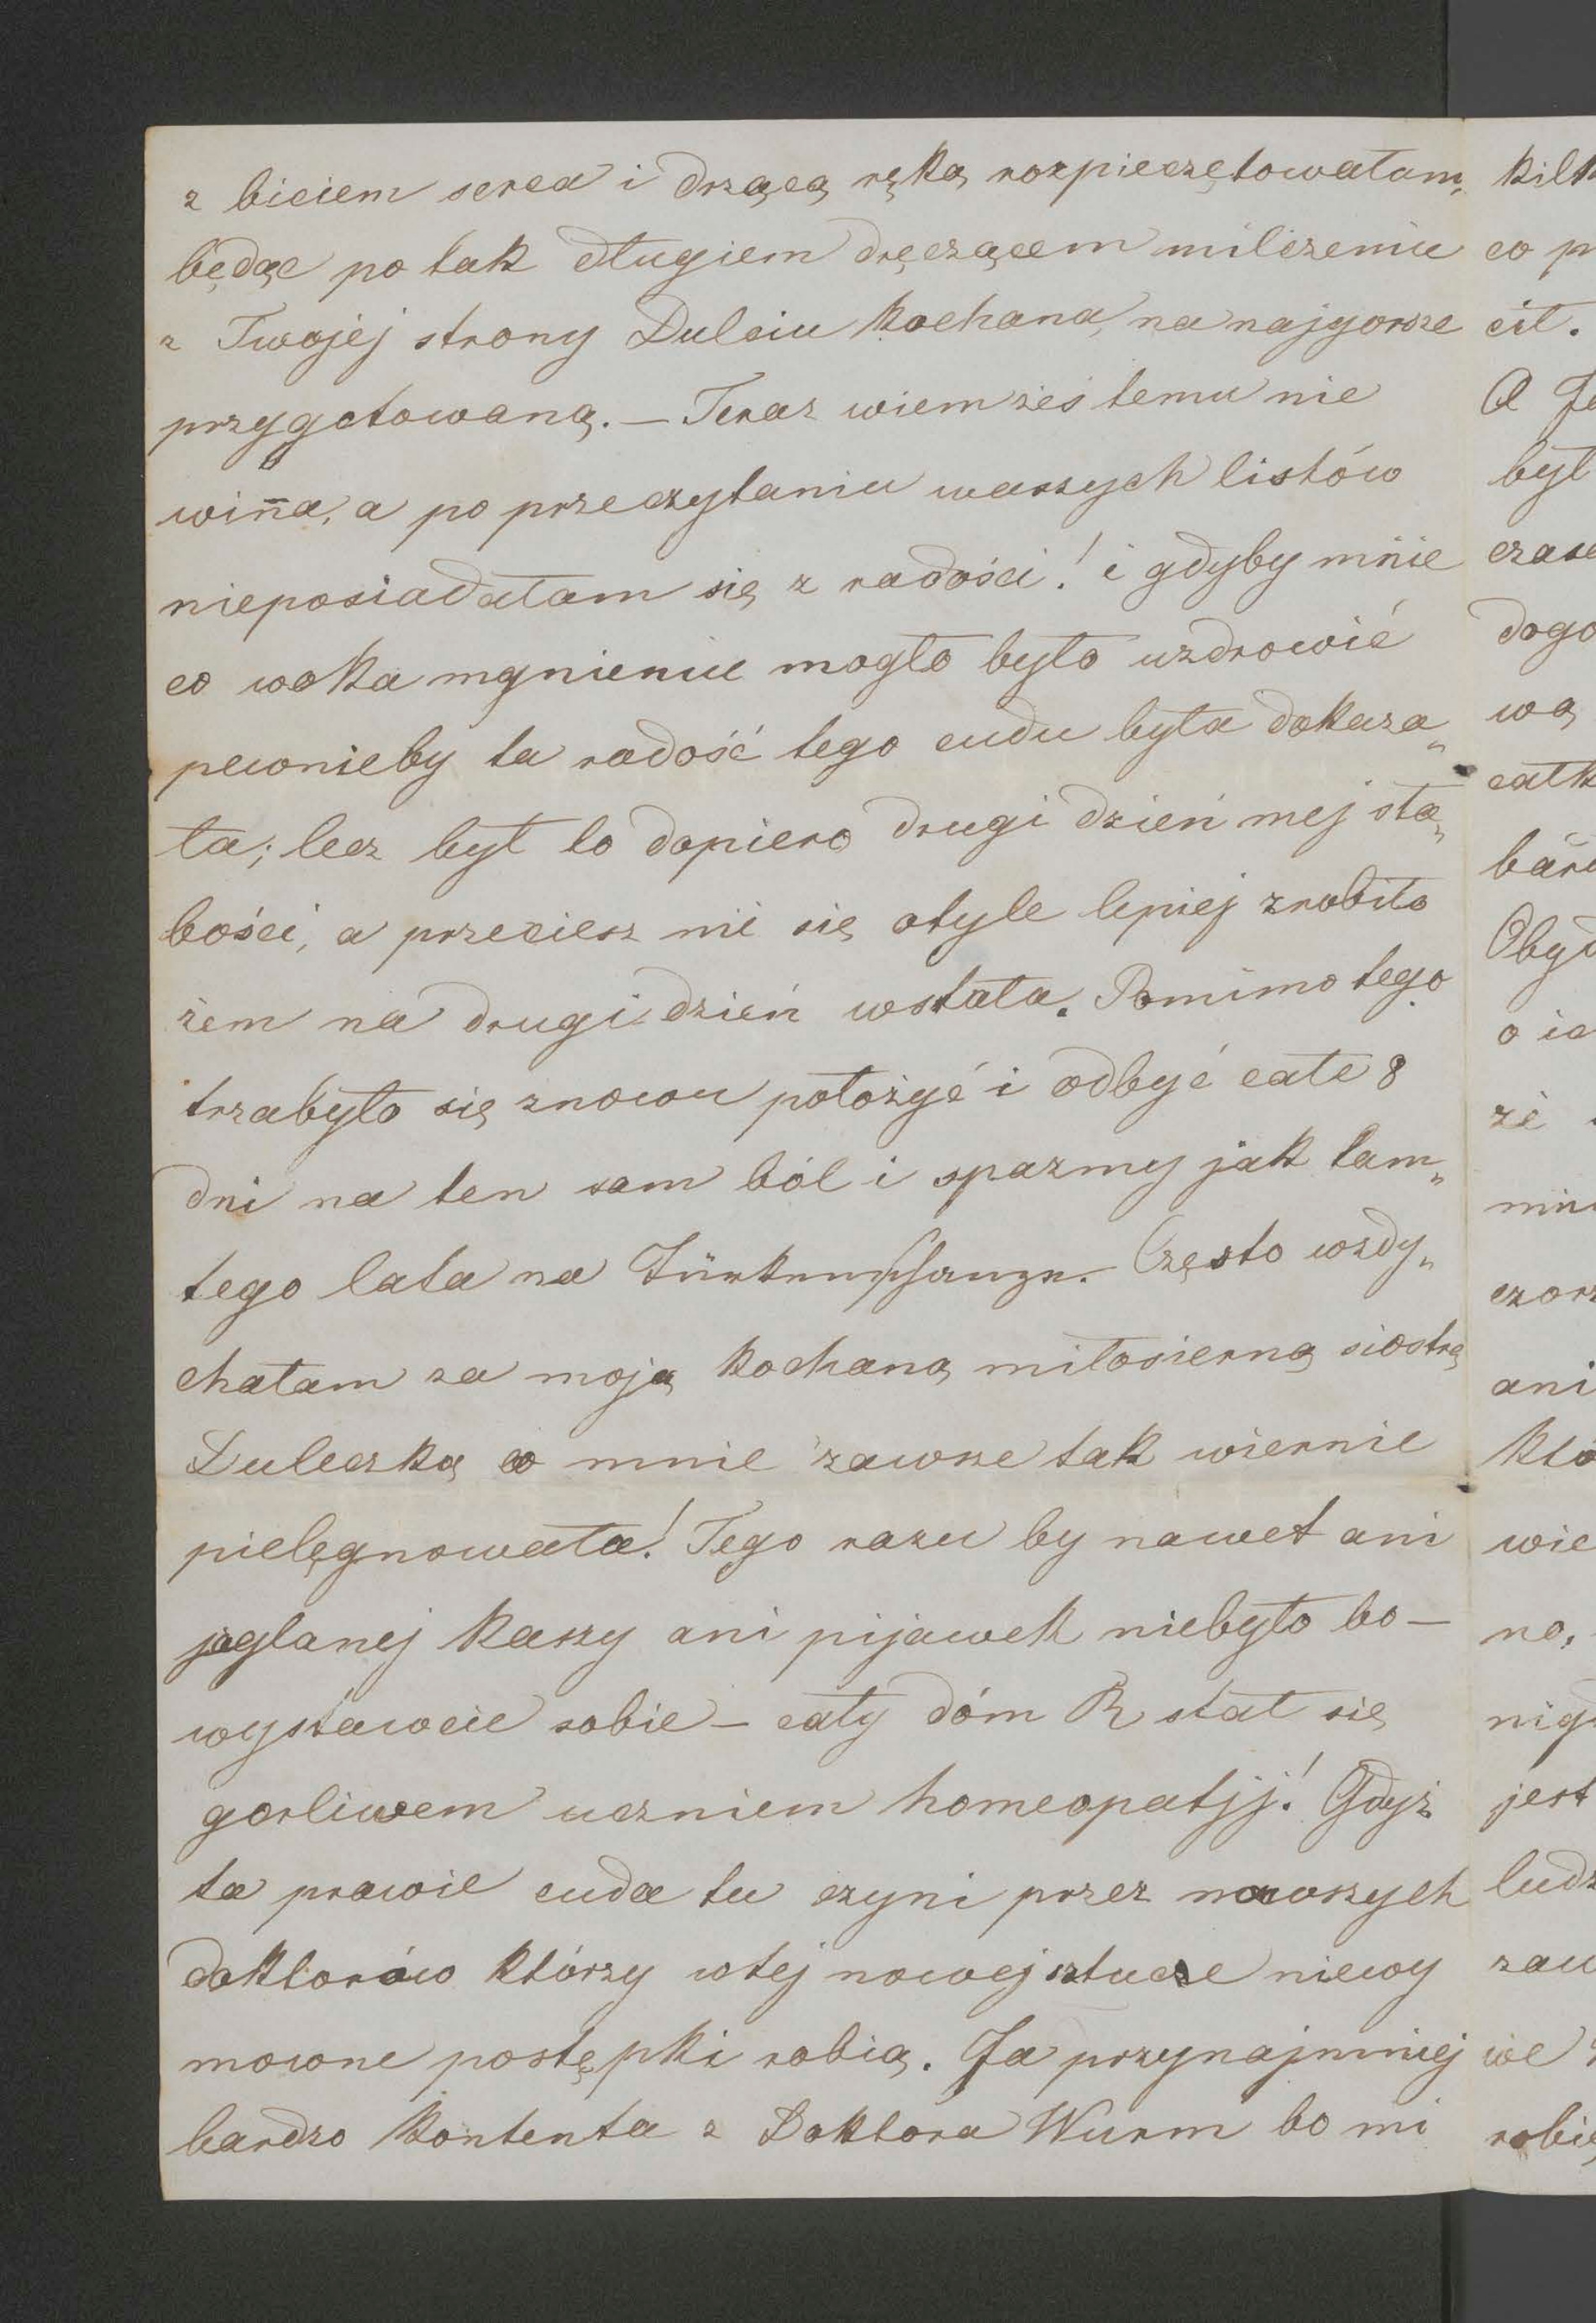 z biciem serca i drzącą ręką rozpieczętowałam,
będąc po tak długiem dręczącem milczeniu
z Twojej strony Dulciu kochana, na najgorsze
przygotowaną. — Teraz wiem żeś temu nie
wina, a po przeczytaniu waszych listów
nieposiadałam się z radości! i gdyby mnie
co woka mgnieniu mogło było uzdrowić
pewnieby ta radość tego cudu była dokaza„
ła; lecz był to dopiero drugi dzień mej sła„
bości, a przeciesz mi się otyle lepiej zrobiło
żem na drugi dzień wstała. Pomimo tego
trzabyło się znowu położyć i odbyć całe 8
dni na ten sam ból i spazmy jak tam„
tego lata na Türkenschanze. Często wzdy„
chałam za moją kochaną miłosierną siostrą
Duleczką co mnie zawsze tak wiernie
pielęgnowała! Tego razu by nawet ani
jaglanej kaszy ani pijawek niebyło bo —
wystawcie sobie — cały dóm R stał się
gorliwem uczniem homeopatjj! Gdyż
ta prawie cuda tu czyni przez naszych
doktorów którzy wtej nowej sztucze niewy
mowne postępki robią. Ja przynajmniej
bardzo kontenta z Doktora Wurm bo mi
kilk
co p
cił.
A Je
był
czase
dogo
wą
całk
bard
Obyd
o ic
że
min
czorz
ani
któ
wie
no,
nigd
jest
ludz
zaw
we
robię